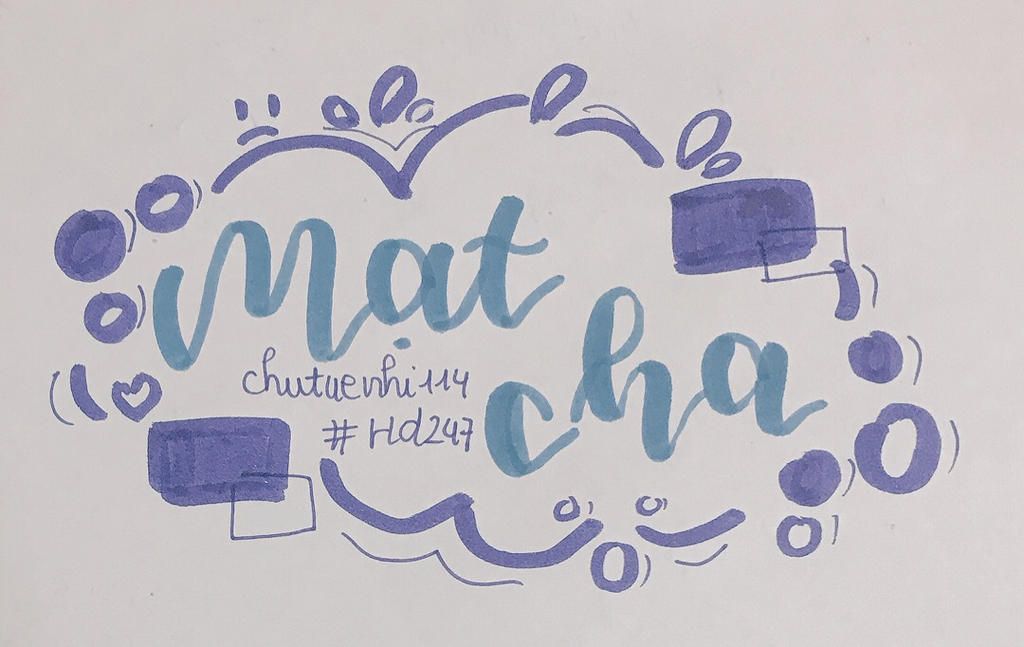 Mạt
cha
chutuenhi114
#Hd247